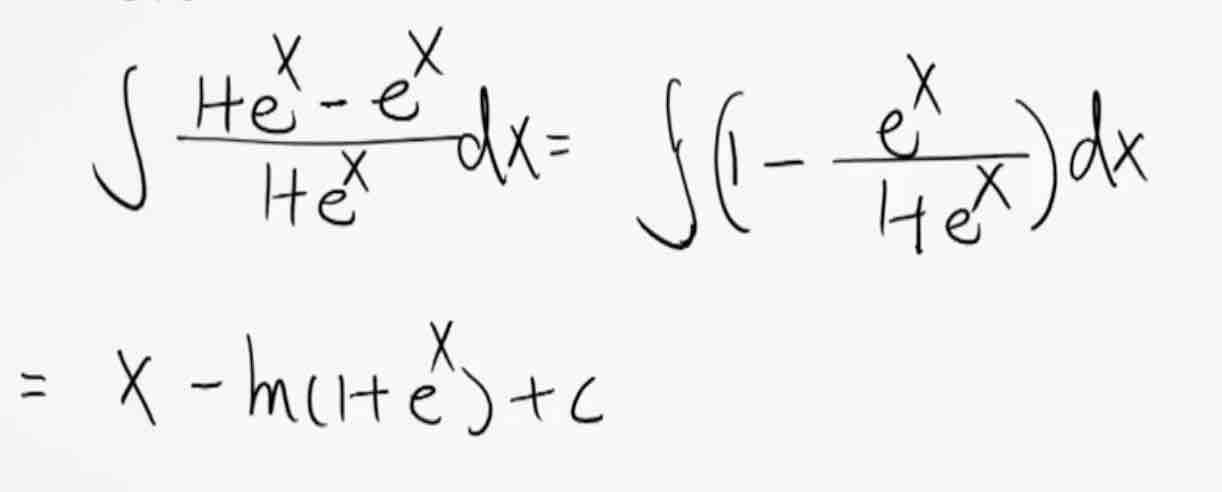 ∫ (1+e^x - e^x)/(1+e^x) dx = ∫(1 - e^x/(1+e^x))dx
= x - ln(1+e^x)+c